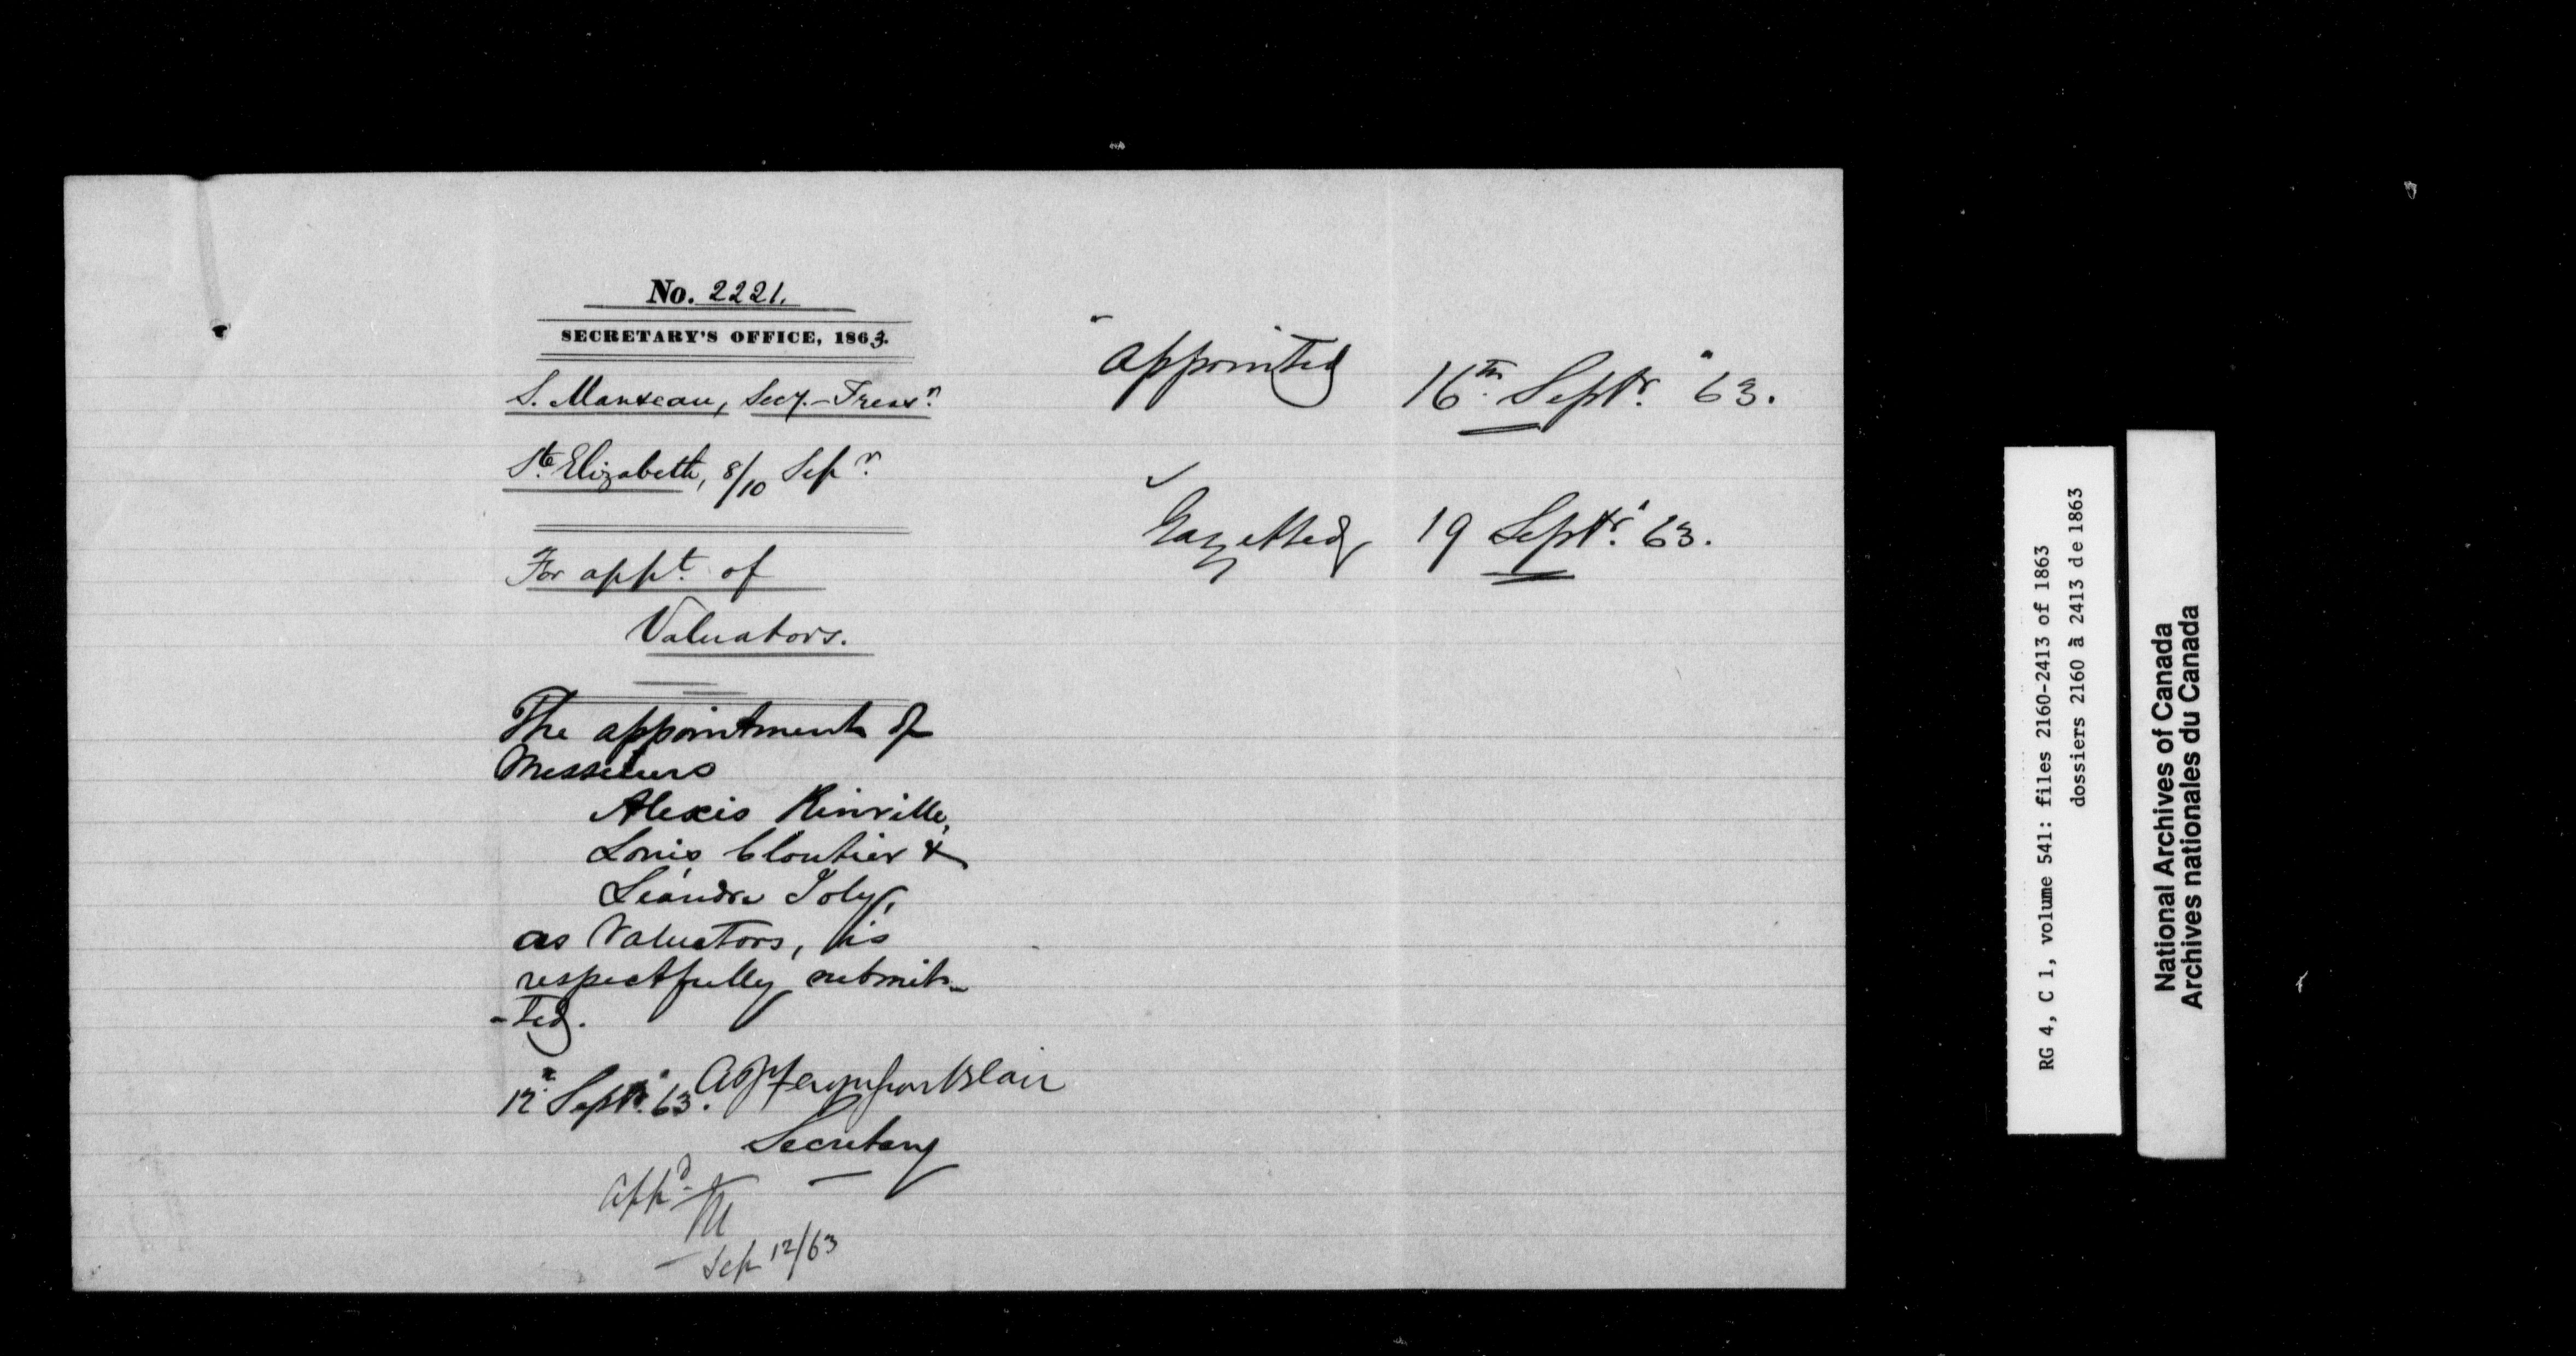 No. 2221.
SECRETARY'S OFFICE, 1863.
S. Manseau, Secy.-Treasr.
Ste. Elizabeth, 8/10 Sepr.
For appt. of
Valuators.
The appointment of
Messieurs
Alexis Rinville,
Louis Cloutier &
Léandre Joly,
as Valuators, is
respectfully submit-
-ted.
12 Septr. 63. A J Fergusson Blair
Secretary
Appd.
Sep 12/63
Appointed 16th Septr. 63.
Gazetted 19 Septr. 63.
RG 4, C 1, volume 541: files 2160-2413 of 1863
dossiers 2160 à 2413 de 1863
National Archives of Canada
Archives nationales du Canada